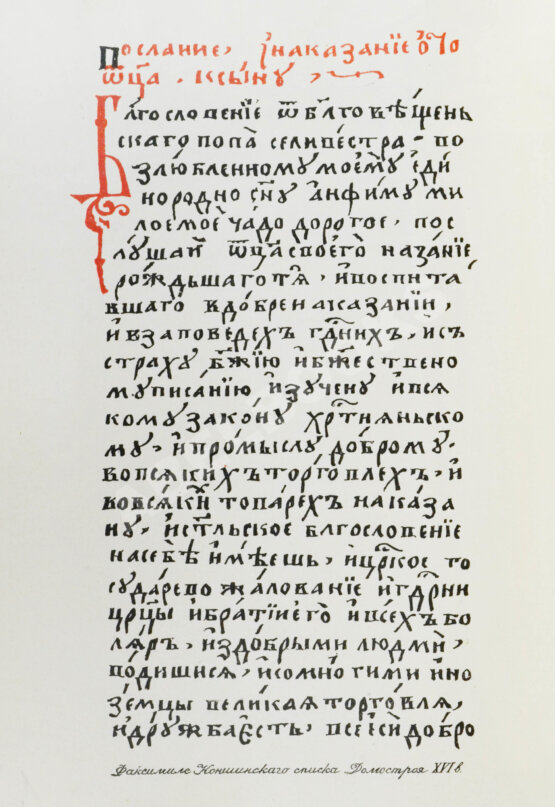 Послание, і наказание ѿ
ѿца . к сыну ,
Блгословение ѿ блговѣщень
скаго попа селивестра - во
злюбленному моему еди
нородно сну анфиму ми
лое моє чадо дорогое , пос
лушай ѿца своего на казание
рождьшаго тѧ , и воспита
вшаго в добре наказании ,
и в заповедехъ гднихъ , и съ
страху бжию и бжествено
му писанию и зучену и вся
кому закону хртияньско
му , и промыслу доброму .
во всякихъ торговлех , и
во всяки товарехъ наказа
ну , и стльское блгословение
на себѣ имѣешь , и црское го
сударево жалование и гдрни
црцы и братии его и всехъ бо
ляръ , и з добрыми людми ,
водишися , и со многими ино
земцы великая торговля ,
и дружба есть , все еси добро
Факсимиле Коншинскаго списка Домостроя XVI в.